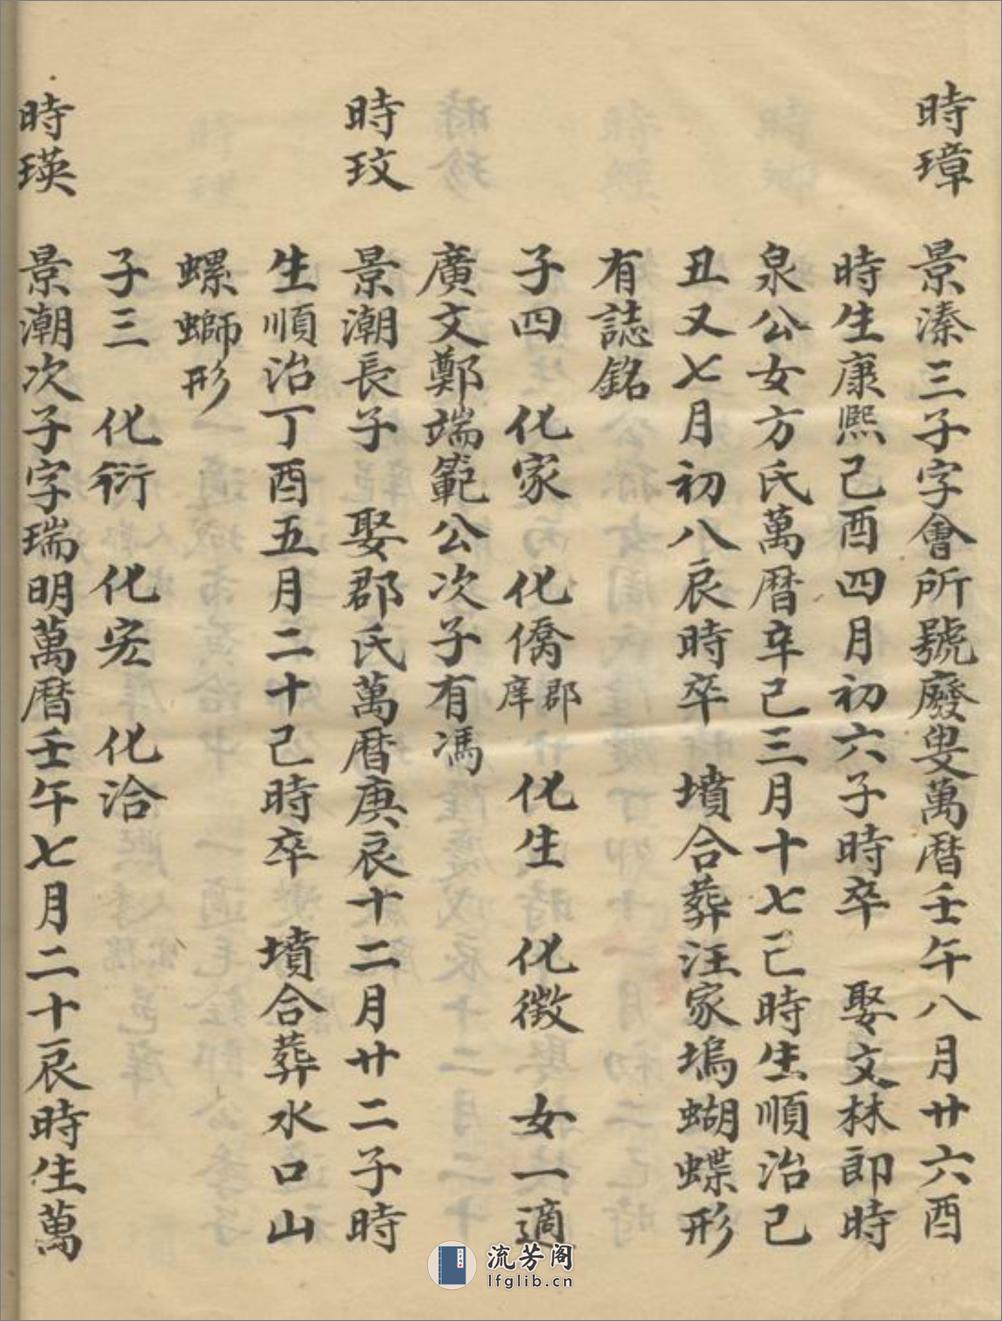 時璋　景溱三子字會所號廢叟萬曆壬午八月廿六酉
時生康熙己酉四月初六子時卒　娶文林郎時
泉公女方氏萬曆辛巳三月十七己時生順治己
丑又七月初八辰時卒　墳合葬汪家塢蝴蝶形
有誌銘
子四　化家　化僑郡庠　化生　化徵　女一適
廣文鄭端範公次子有馮
時玟　景潮長子　娶郡氏萬曆庚辰十二月廿二子時
生順治丁酉五月二十己時卒　墳合葬水口山
螺螄形
子三　化衍　化宏　化洽
時瑛　景潮次子字瑞明萬曆壬午七月二十辰時生萬
流芳阁
lfglib.cn